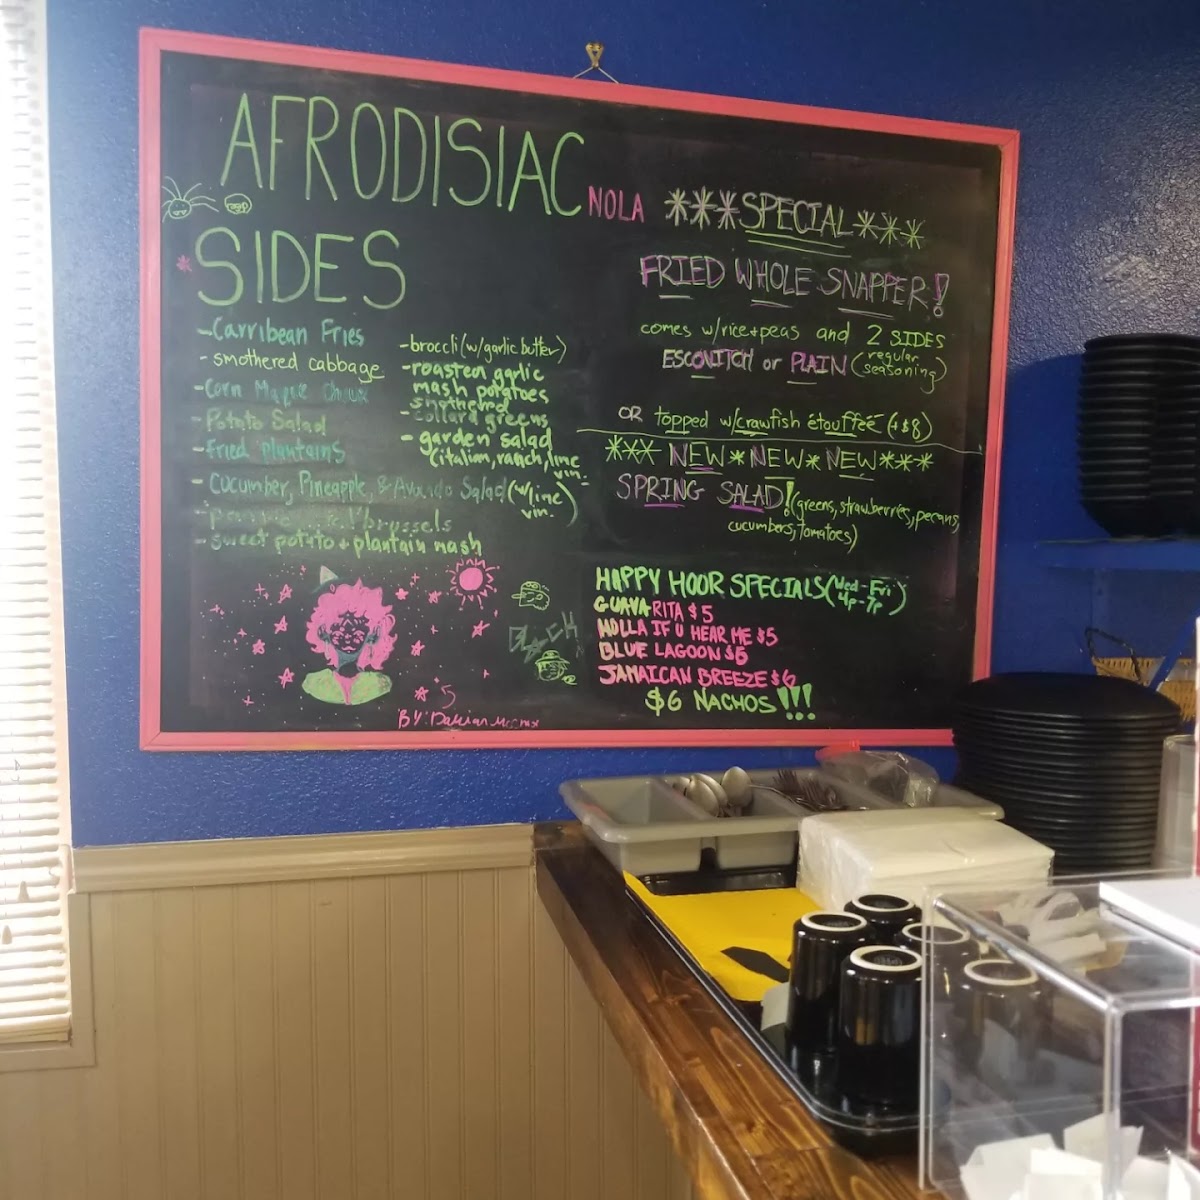 AFRODISIAC NOLA
SIDES
- Carribean Fries
- smothered cabbage
- Corn Maque Choux
- Potato Salad
- Fried plantains
- Cucumber, Pineapple, & Avacado Salad (w/lime vin.)
brussels
- sweet potato + plantain mash
- broccli (w/garlic butter)
- roasten garlic
mash potatoes
- smothered
collard greens
- garden salad
(italian, ranch, lime
vin.
***SPECIAL***
FRIED WHOLE SNAPPER!
comes w/rice+peas and 2 SIDES
ESCOVITCH or PLAIN (regular seasoning)
OR topped w/crawfish étouffée (+$8)
*** NEW * NEW * NEW ***
SPRING SALAD! (greens, strawberries, pecans,
cucumbers, tomatoes)
HAPPY HOUR SPECIALS (Wed-Fri
4p-7p)
GUAVARITA $5
HOLLA IF U HEAR ME $5
BLUE LAGOON $5
JAMAICAN BREEZE $6
$6 NACHOS!!!
BLACK
BY: